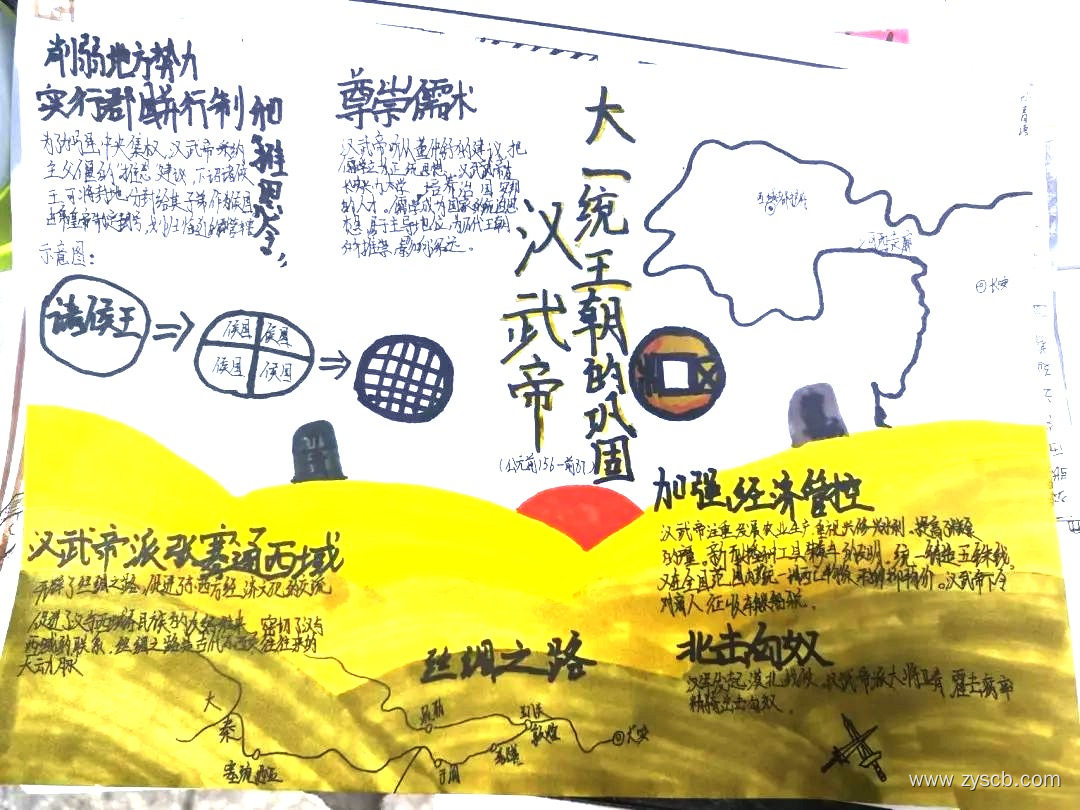 削弱地方势力
实行郡县并行制和"推恩令"
为加强中央集权,汉武帝采纳
主父偃的"推恩"建议,下诏诸侯
王,可将封地分封给其子弟作为侯国
由皇帝制定封号
示意图:
诸侯王
侯国 侯国
侯国 侯国
尊崇儒术
汉武帝听从董仲舒的建议,把
儒学立为正统思想
的人才。儒学成为国家的统治思
想,居于主导地位,为历代王朝
所推崇,影响深远。
大一统王朝的巩固
汉武帝
(公元前156-前87)
河西走廊
长安
加强经济管控
汉武帝注重发展农业生产,重视兴修水利,提高了粮食
的产量。
统一铸造五铢钱,
又在全国范围内统一调配物资,平抑物价。汉武帝下令
对商人征收车船税。
汉武帝派张骞通西域
开辟了丝绸之路,促进了东西方经济文化的交流
促进了汉与西域各民族的友好往来,密切了汉与
西域的联系,丝绸之路是古代东西方往来的
大动脉
丝绸之路
大秦
敦煌
于阗
长安
北击匈奴
汉军发起漠北战役,汉武帝派大将卫青、霍去病率
精骑出击匈奴。
www.zyscb.com